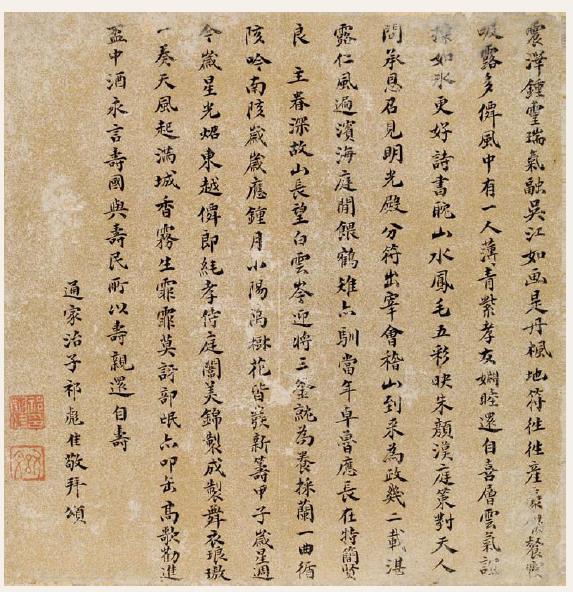 震澤鍾靈瑞氣融吳江如画是丹楓地符徃徃產豪英餐霞
吸露多僊風中有一人薄青紫孝友婣睦還自喜層雲氣誼
如氷更好詩書眈山水鳳毛五彩映朱顏漢庭策對天人
問承恩召見明光殿分符出宰會稽山到来為政幾二載湛
露仁風遍濱海庭閒餵鶴雉亦馴當年卓魯應長在特簡賢
良主眷深故山長望白雲岑迎將三釜詵為養採蘭一曲循
陔吟南陔歲歲應鍾月小陽萬樹花皆發新籌甲子歲星週
今歲星光炤東越僊郎純孝侍庭闈美錦製成製舞衣琅璈
一奏天風起滿城香霧生霏霏莫訝部氓亦叩缶高歌勸進
盃中酒永言壽國與壽民所以壽親還自壽
通家治子祁彪佳敬拜頌